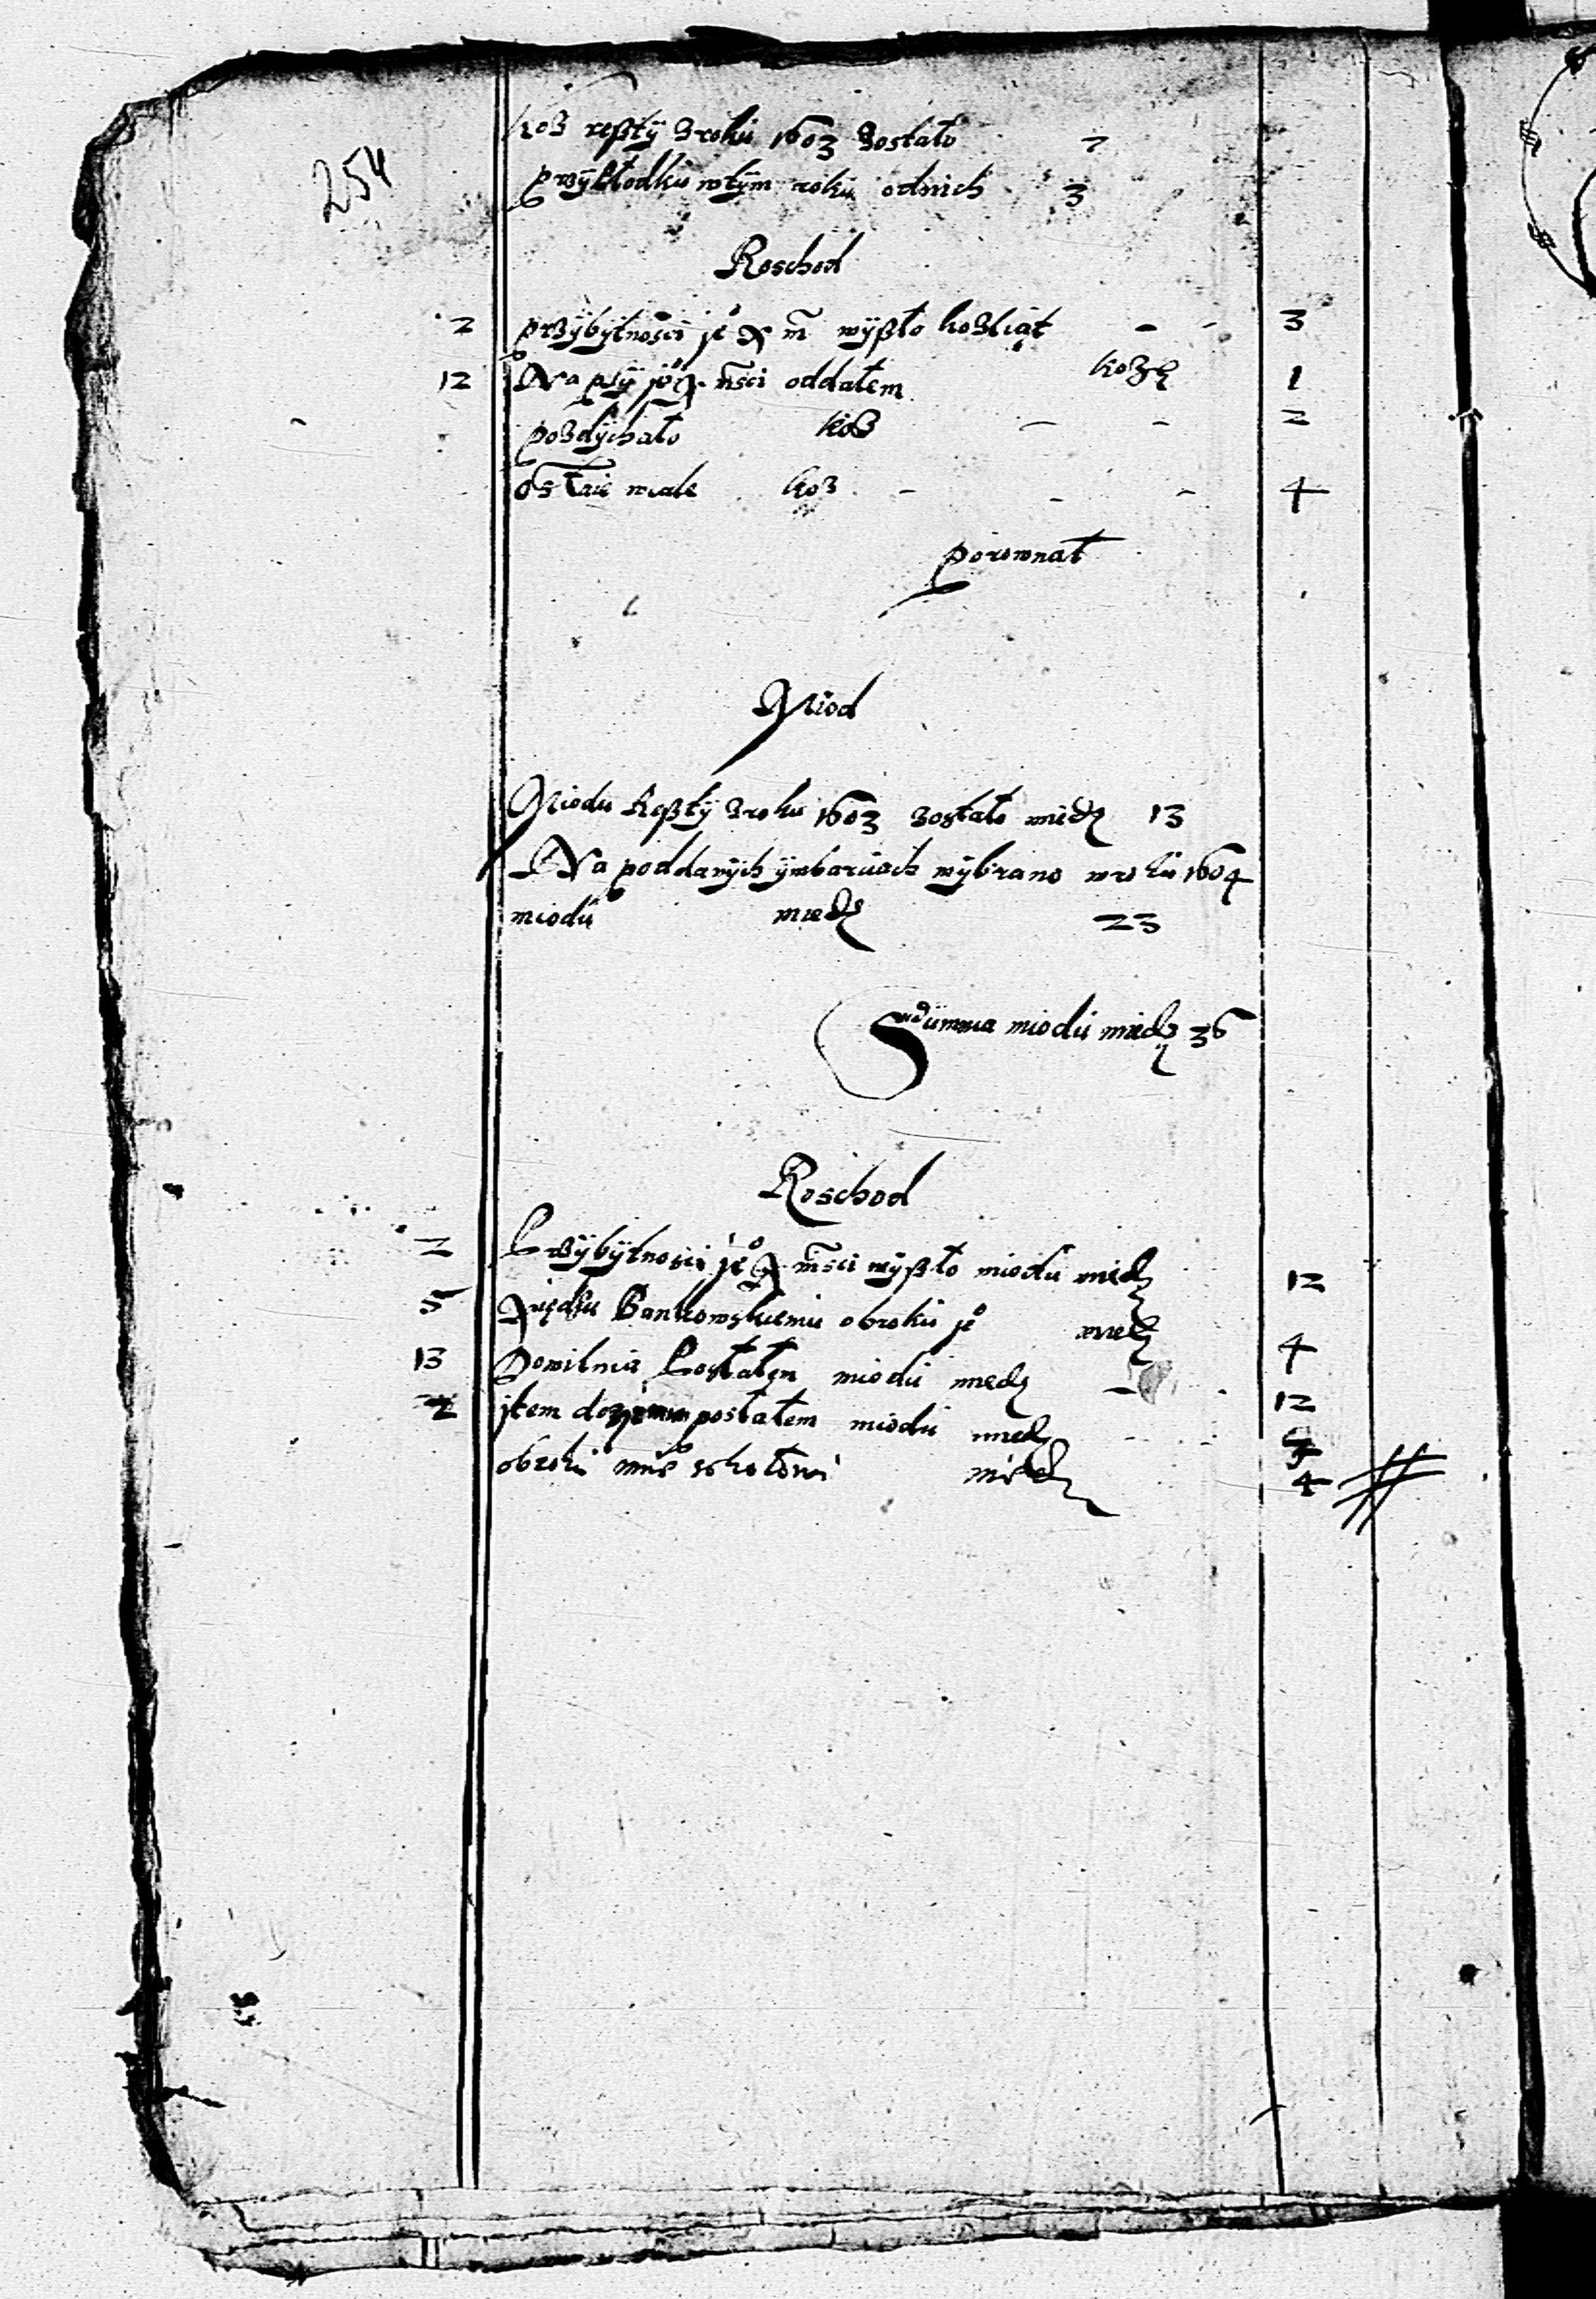 254
Koz reszty z roku 1603 zostało 7
przypłodku w tÿm roku od nich 3
Roschod
2 przÿbÿtnosci je° X m wÿszło kozliąt 3
12 Na psÿ je° X msci oddałem kozę 1
pozdÿchało koz 2
ostaie wcale koz 4
porownał
Miod
Miodu Resztÿ z roku 1603 zostało miedz 13
Na poddanÿch ÿ w barciach wÿbrano w roku 1604
miodu miedz 23
Summa miodu miedz 36
Roschod
2 Przÿbÿtnosci je° X msci wÿszło miodu miedz 12
5 Xiędzu Bankowskiemu obroku je° miedz 4
13 Do wilnia Posłałem miodu miedz 12
jtem do posłałem miodu miedz
obroku miedz 4